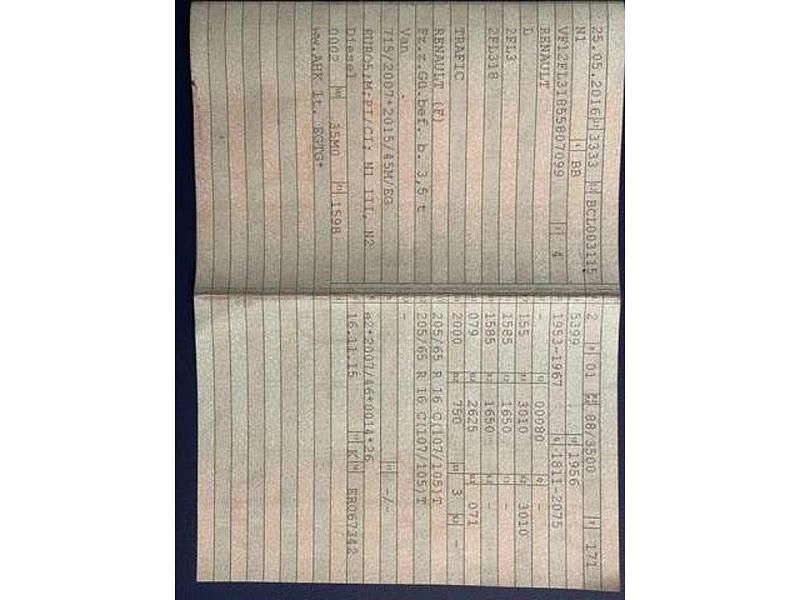 25.05.2016 3333 BCL003115
N1 BB
VF12FL31855807099 4
RENAULT
L
2FL3
2FL318
TRAFIC
RENAULT (F)
Fz.z.Gü.bef. b. 3,5 t
Van
715/2007*2015/45M/EG
EURO5;M;PI/CI; N1 III, N2
Diesel
0002 35M0 1598
ww.AHK lt. EGTG*
2 01 88/3500 171
5399 1956
1953-1967 1811-2075
- 00080 -
155 3010 3010
1585 1650 -
1585 1650 -
079 2625 071
2000 750 3 -
205/65 R 16 C(107/105)T
205/65 R 16 C(107/105)T
- -/-
e2*2007/46*0014*26
16.11.15 K ER067342